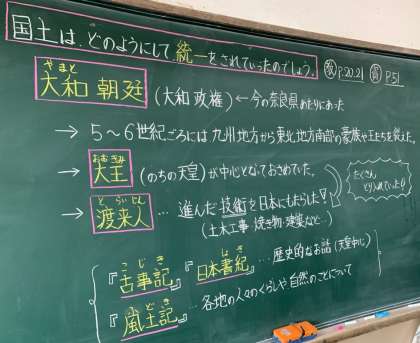 国土は、どのようにして、統一をされていったのでしょう。 教 P.20.21 資 P51
やまと
大和朝廷 (大和政権) ← 今の奈良県あたりにあった
→ 5〜6世紀ごろには九州地方から東北地方南部の豪族や王たちを従えた。
おおきみ
→ 大王 (のちの天皇)が中心となっておさめていた。
たくさん
とり入れていた!!
と らいじん
→ 渡来人 … 進んだ技術を日本にもたらした!
(土木工事・焼き物・建築など…)
こじき にほんしょき
『古事記』『日本書紀』… 歴史的なお話(天皇中心)
ふどき
『風土記』… 各地の人々のくらしや自然のことについて